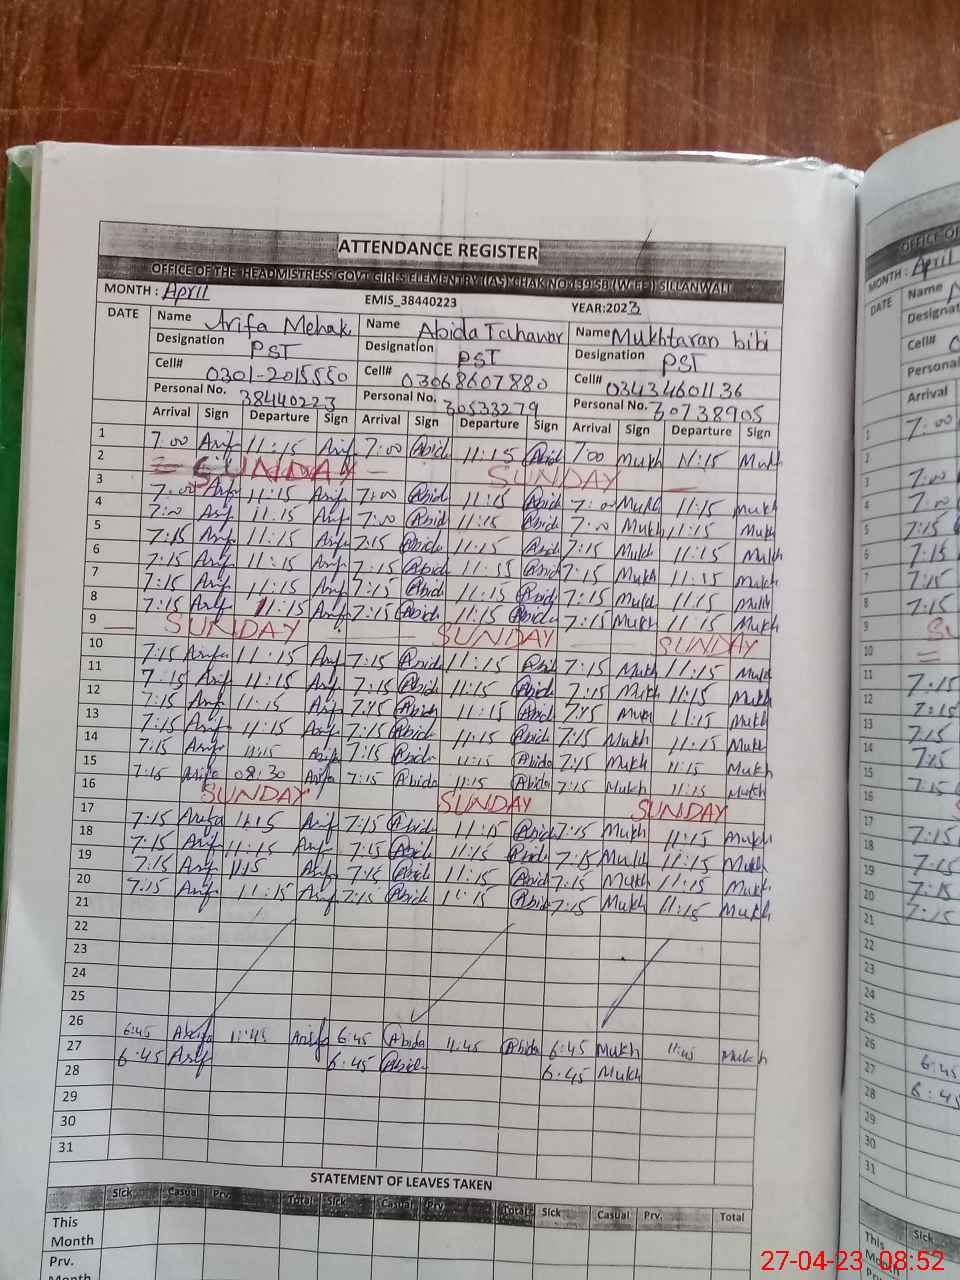 ATTENDANCE REGISTER
OFFICE OF THE HEADMISTRESS GOVT GIRLS ELEMENTRY (IAS) CHAK NO 139 SB (W.EE) SILLANWALI
MONTH : April EMIS_38440223 YEAR:2023
DATE Name Arifa Mehak Name Abida Tahawar Name Mukhtaran bibi
Designation PST Designation PST Designation PST
Cell# 0301-2015550 Cell# 03068607880 Cell# 03434601136
Personal No. 38440223 Personal No. 30533279 Personal No. 30738905
Arrival Sign Departure Sign Arrival Sign Departure Sign Arrival Sign Departure Sign
1 7:00 Arif 11:15 Arif 7:00 Abid 11:15 Abid 7:00 Mukh 11:15 Mukh
2 SUNDAY SUNDAY
3 7:00 Arif 11:15 Arif 7:00 Abid 11:15 Abid 7:00 Mukh 11:15 Mukh
4 7:00 Arif 11:15 Arif 7:00 Abid 11:15 Abid 7:00 Mukh 11:15 Mukh
5 7:15 Arif 11:15 Arif 7:15 Abid 11:15 Abid 7:15 Mukh 11:15 Mukh
6 7:15 Arif 11:15 Arif 7:15 Abid 11:15 Abid 7:15 Mukh 11:15 Mukh
7 7:15 Arif 11:15 Arif 7:15 Abid 11:15 Abid 7:15 Mukh 11:15 Mukh
8 7:15 Arif 11:15 Arif 7:15 Abid 11:15 Abid 7:15 Mukh 11:15 Mukh
9 SUNDAY SUNDAY SUNDAY
10 7:15 Arifa 11:15 Arif 7:15 Abid 11:15 Abid 7:15 Mukh 11:15 Mukh
11 7:15 Arif 11:15 Arif 7:15 Abid 11:15 Abid 7:15 Mukh 11:15 Mukh
12 7:15 Arif 11:15 Arif 7:15 Abid 11:15 Abid 7:15 Mukh 11:15 Mukh
13 7:15 Arif 11:15 Arif 7:15 Abid 11:15 Abid 7:15 Mukh 11:15 Mukh
14 7:15 Arif 11:15 Arifa 7:15 Abid 11:15 Abida 7:15 Mukh 11:15 Mukh
15 7:15 Arifa 08:30 Arifa 7:15 Abida 11:15 Abida 7:15 Mukh 11:15 Mukh
16 SUNDAY SUNDAY SUNDAY
17 7:15 Arifa 11:15 Arif 7:15 Abid 11:15 Abid 7:15 Mukh 11:15 Mukh
18 7:15 Arif 11:15 Arif 7:15 Abid 11:15 Abid 7:15 Mukh 11:15 Mukh
19 7:15 Arif 11:15 Arif 7:15 Abid 11:15 Abid 7:15 Mukh 11:15 Mukh
20 7:15 Arif 11:15 Arif 7:15 Abid 11:15 Abid 7:15 Mukh 11:15 Mukh
21
22
23
24
25
26 6:45 Arifa 11:45 Arifa 6:45 Abida 11:45 Abida 6:45 Mukh 11:45 Mukh
27 6:45 Arif 6:45 Abid 6:45 Mukh
28
29
30
31
STATEMENT OF LEAVES TAKEN
Sick Casual Prv. Total Sick Casual Prv. Total Sick Casual Prv. Total
This Month
Prv. Month
OFFICE OF
MONTH : April
DATE Name
Designation
Cell#
Personal
Arrival
1 7:00
2
3 7:00
4 7:00
5 7:15
6 7:15
7 7:15
8 7:15
9
10
11 7:15
12 7:15
13 7:15
14 7:15
15 7:15
16
17 7:15
18 7:15
19 7:15
20 7:15
21
22
23
24
25
26 6:45
27 6:45
28
29
30
31
Sick
This
27-04-23 08:52